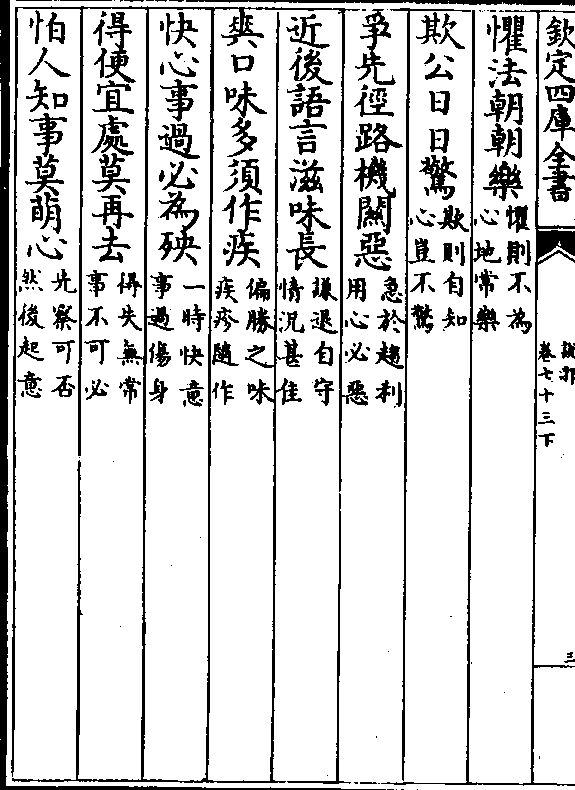 欽定四庫全書
說郛
卷七十三下
三
懼法朝朝樂懼則不為心地常樂
欺公日日驚欺則自知心豈不驚
爭先徑路機關惡急於趨利用心必惡
近後語言滋味長謙退自守情況甚佳
爽口味多須作疾偏勝之味疾疹隨作
快心事過必為殃一時快意事過傷身
得便宜處莫再去得失無常事不可必
怕人知事莫萌心先察可否然後起意